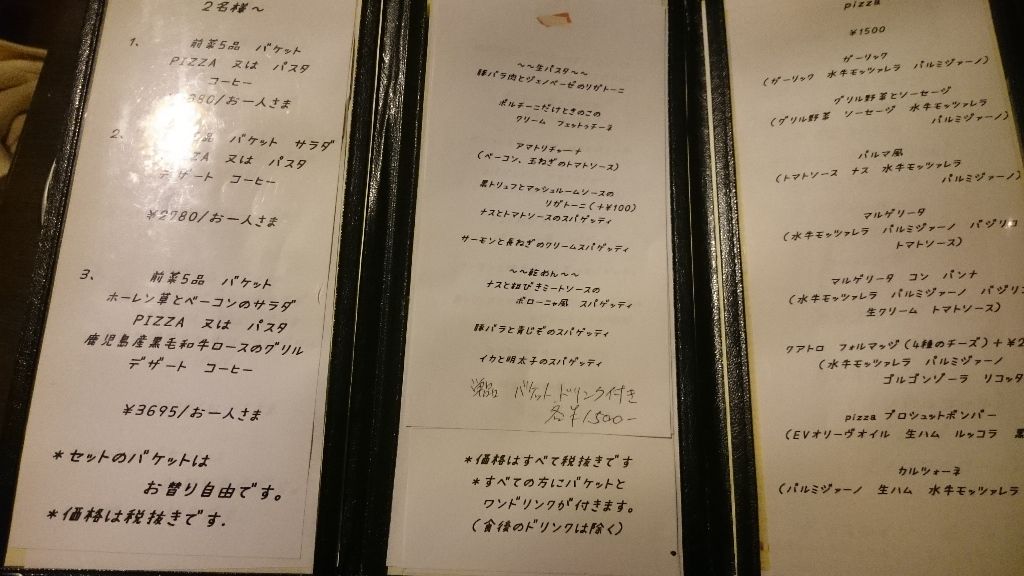 2名様～
1. 前菜5品 バケット
PIZZA 又は パスタ
コーヒー
80/お一人さま
2. 品 バケット サラダ
ZZA 又は パスタ
デザート コーヒー
¥2780/お一人さま
3. 前菜5品 バケット
ホーレン草とベーコンのサラダ
PIZZA 又は パスタ
鹿児島産黒毛和牛ロースのグリル
デザート コーヒー
¥3695/お一人さま
*セットのバケットは
お替り自由です。
*価格は税抜きです.
～～生パスタ～～
豚バラ肉とジェノベーゼのリガトーニ
ポルチーニだけときのこの
クリーム フェットゥチーネ
アマトリチャーナ
(ベーコン、玉ねぎのトマトソース)
黒トリュフとマッシュルームソースの
リガトーニ(+¥100)
ナスとトマトソースのスパゲッティ
サーモンと長ねぎのクリームスパゲッティ
～～乾めん～～
ナスと粗びきミートソースの
ボローニャ風 スパゲッティ
豚バラと青じそのスパゲッティ
イカと明太子のスパゲッティ
バケット ドリンク付き
各¥1,500-
*価格はすべて税抜きです
*すべての方にバケットと
ワンドリンクが付きます。
(食後のドリンクは除く)
pizza
¥1500
ガーリック
(ガーリック 水牛モッツァレラ パルミジァーノ)
グリル野菜とソーセージ
(グリル野菜 ソーセージ 水牛モッツァレラ
パルミジァーノ)
パルマ風
(トマトソース ナス 水牛モッツァレラ
パルミジァーノ)
マルゲリータ
(水牛モッツァレラ パルミジァーノ バジリコ
トマトソース)
マルゲリータ コン パンナ
(水牛モッツァレラ パルミジァーノ バジリコ
生クリーム トマトソース)
クアトロ フォルマッジ(4種のチーズ)+¥2
(水牛モッツァレラ パルミジァーノ
ゴルゴンゾーラ リコッタ
pizza プロシュットボンバー
(EVオリーヴオイル 生ハム ルッコラ 黒
カルツォーネ
(パルミジァーノ 生ハム 水牛モッツァレラ